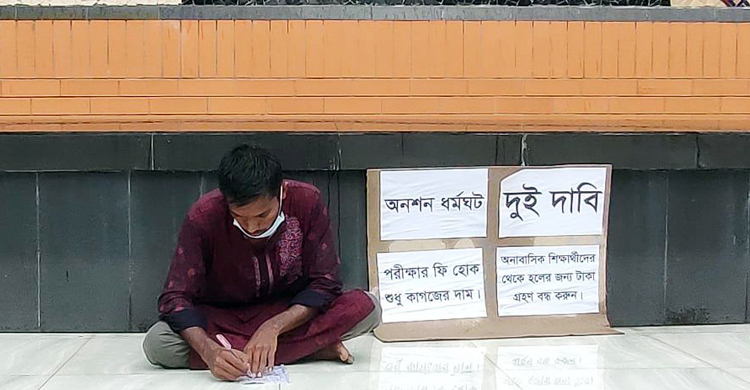 অনশন ধর্মঘট
দুই দাবি
পরীক্ষার ফি হোক
শুধু কাগজের দাম।
অনাবাসিক শিক্ষার্থীদের
থেকে হলের জন্য টাকা
গ্রহণ বন্ধ করুন।